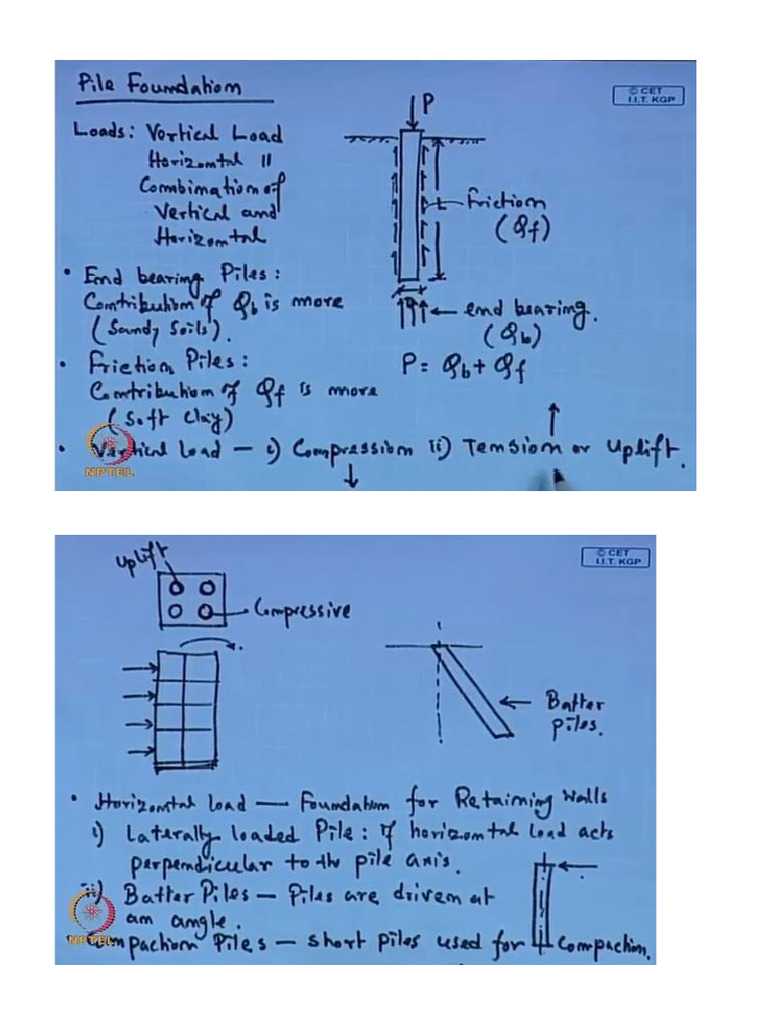 Pile Foundation
© CET
I.I.T. KGP
P
Loads: Vertical Load
Horizontal "
Combination of
Vertical and
Horizontal
Friction
(Qf)
• End bearing Piles:
Contribution of Qb is more
(Sandy Soils).
end bearing.
(Qb)
P = Qb + Qf
• Friction Piles:
Contribution of Qf is more
(Soft clay)
• Vertical Load — i) Compression ii) Tension or Uplift.
NPTEL
© CET
I.I.T. KGP
Uplift
Compressive
Batter
piles.
• Horizontal load — Foundation for Retaining Walls
i) Laterally loaded Pile: If horizontal load acts
perpendicular to the pile axis.
ii) Batter Piles — Piles are driven at
an angle.
• Compaction Piles — short piles used for Compaction.
NPTEL